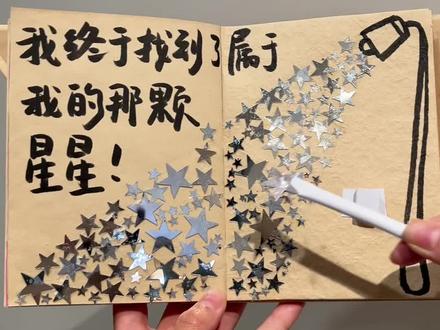 我终于找到了属于
我的那颗
星星！